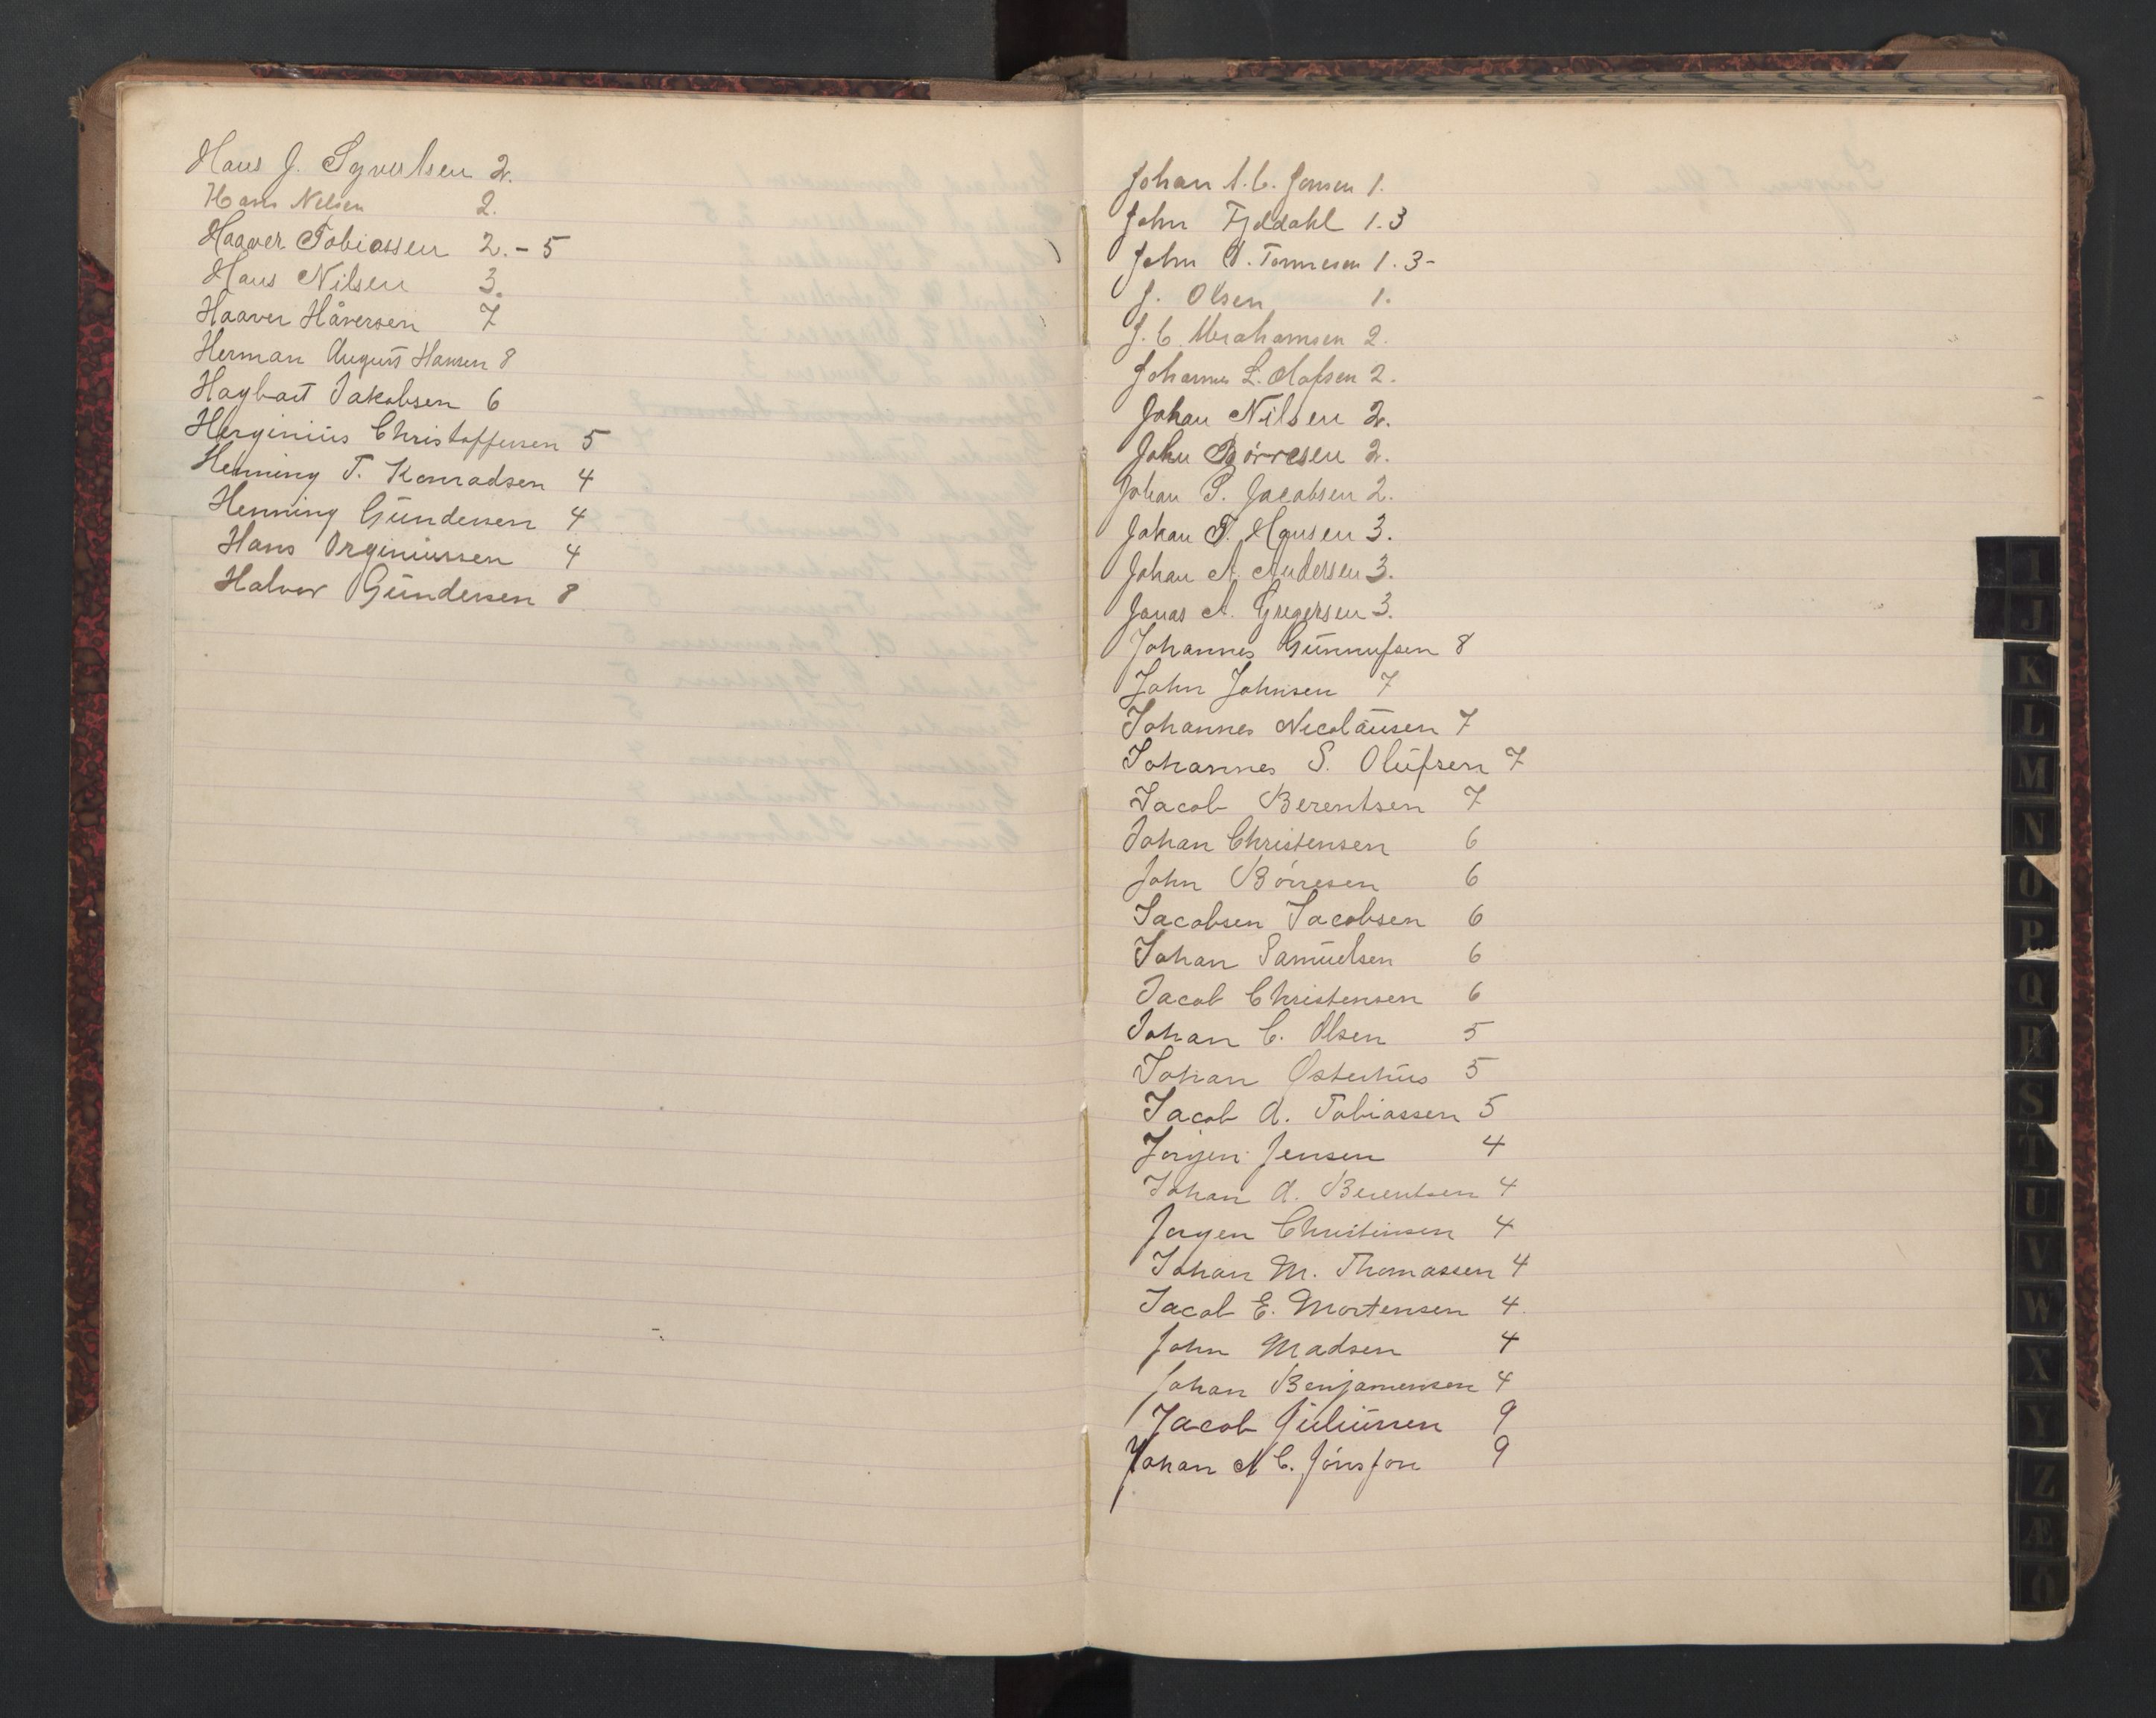 Hans J. Syvertsen 2.
Hans Nelsen 2.
Haaver Tobiassen 2. - 5
Hans Nilsen 3.
Haaver Håversen 7
Herman August Hansen 8
Hagbart Jakobsen 6
Herginius Christoffersen 5
Henning T. Konradsen 4
Henning Gundersen 4
Hans Orginiussen 4
Halvor Gundersen 8
Johan A. C. Jonsen 1.
John Fjeldahl 1.3
John A. Tonnesen 1.3-
J. Olsen 1.
J. C. Abrahamsen 2.
Johannes L. Olafsen 2.
Johan Nilsen 2.
John Børresen 2.
Johan P. Jacobsen 2.
Johan T. Hansen 3.
Johan A. Andersen 3.
Jonas A. Gregersen 3.
Johannes Gunnufsen 8
John Johnsen 7
Johannes Nicolausen 7
Johannes S. Olufsen 7
Jacob Berentsen 7
Johan Christensen 6
John Børresen 6
Jacobsen Jacobsen 6
Johan Samuelsen 6
Jacob Christensen 6
Johan C. Olsen 5
Johan Osterhus 5
Jacob A. Tobiassen 5
Jørgen Jensen 4
Johan A. Berentsen 4
Jørgen Christensen 4
Johan M. Thomassen 4
Jacob E. Mortensen 4.
John Madsen 4
Johan Benjamensen 4
Jacob Juliussen 9
Johan A C. Jönsson 9
I
J
K
L
M
N
O
P
Q
R
S
T
U
V
W
X
Y
Z
Æ
Ö